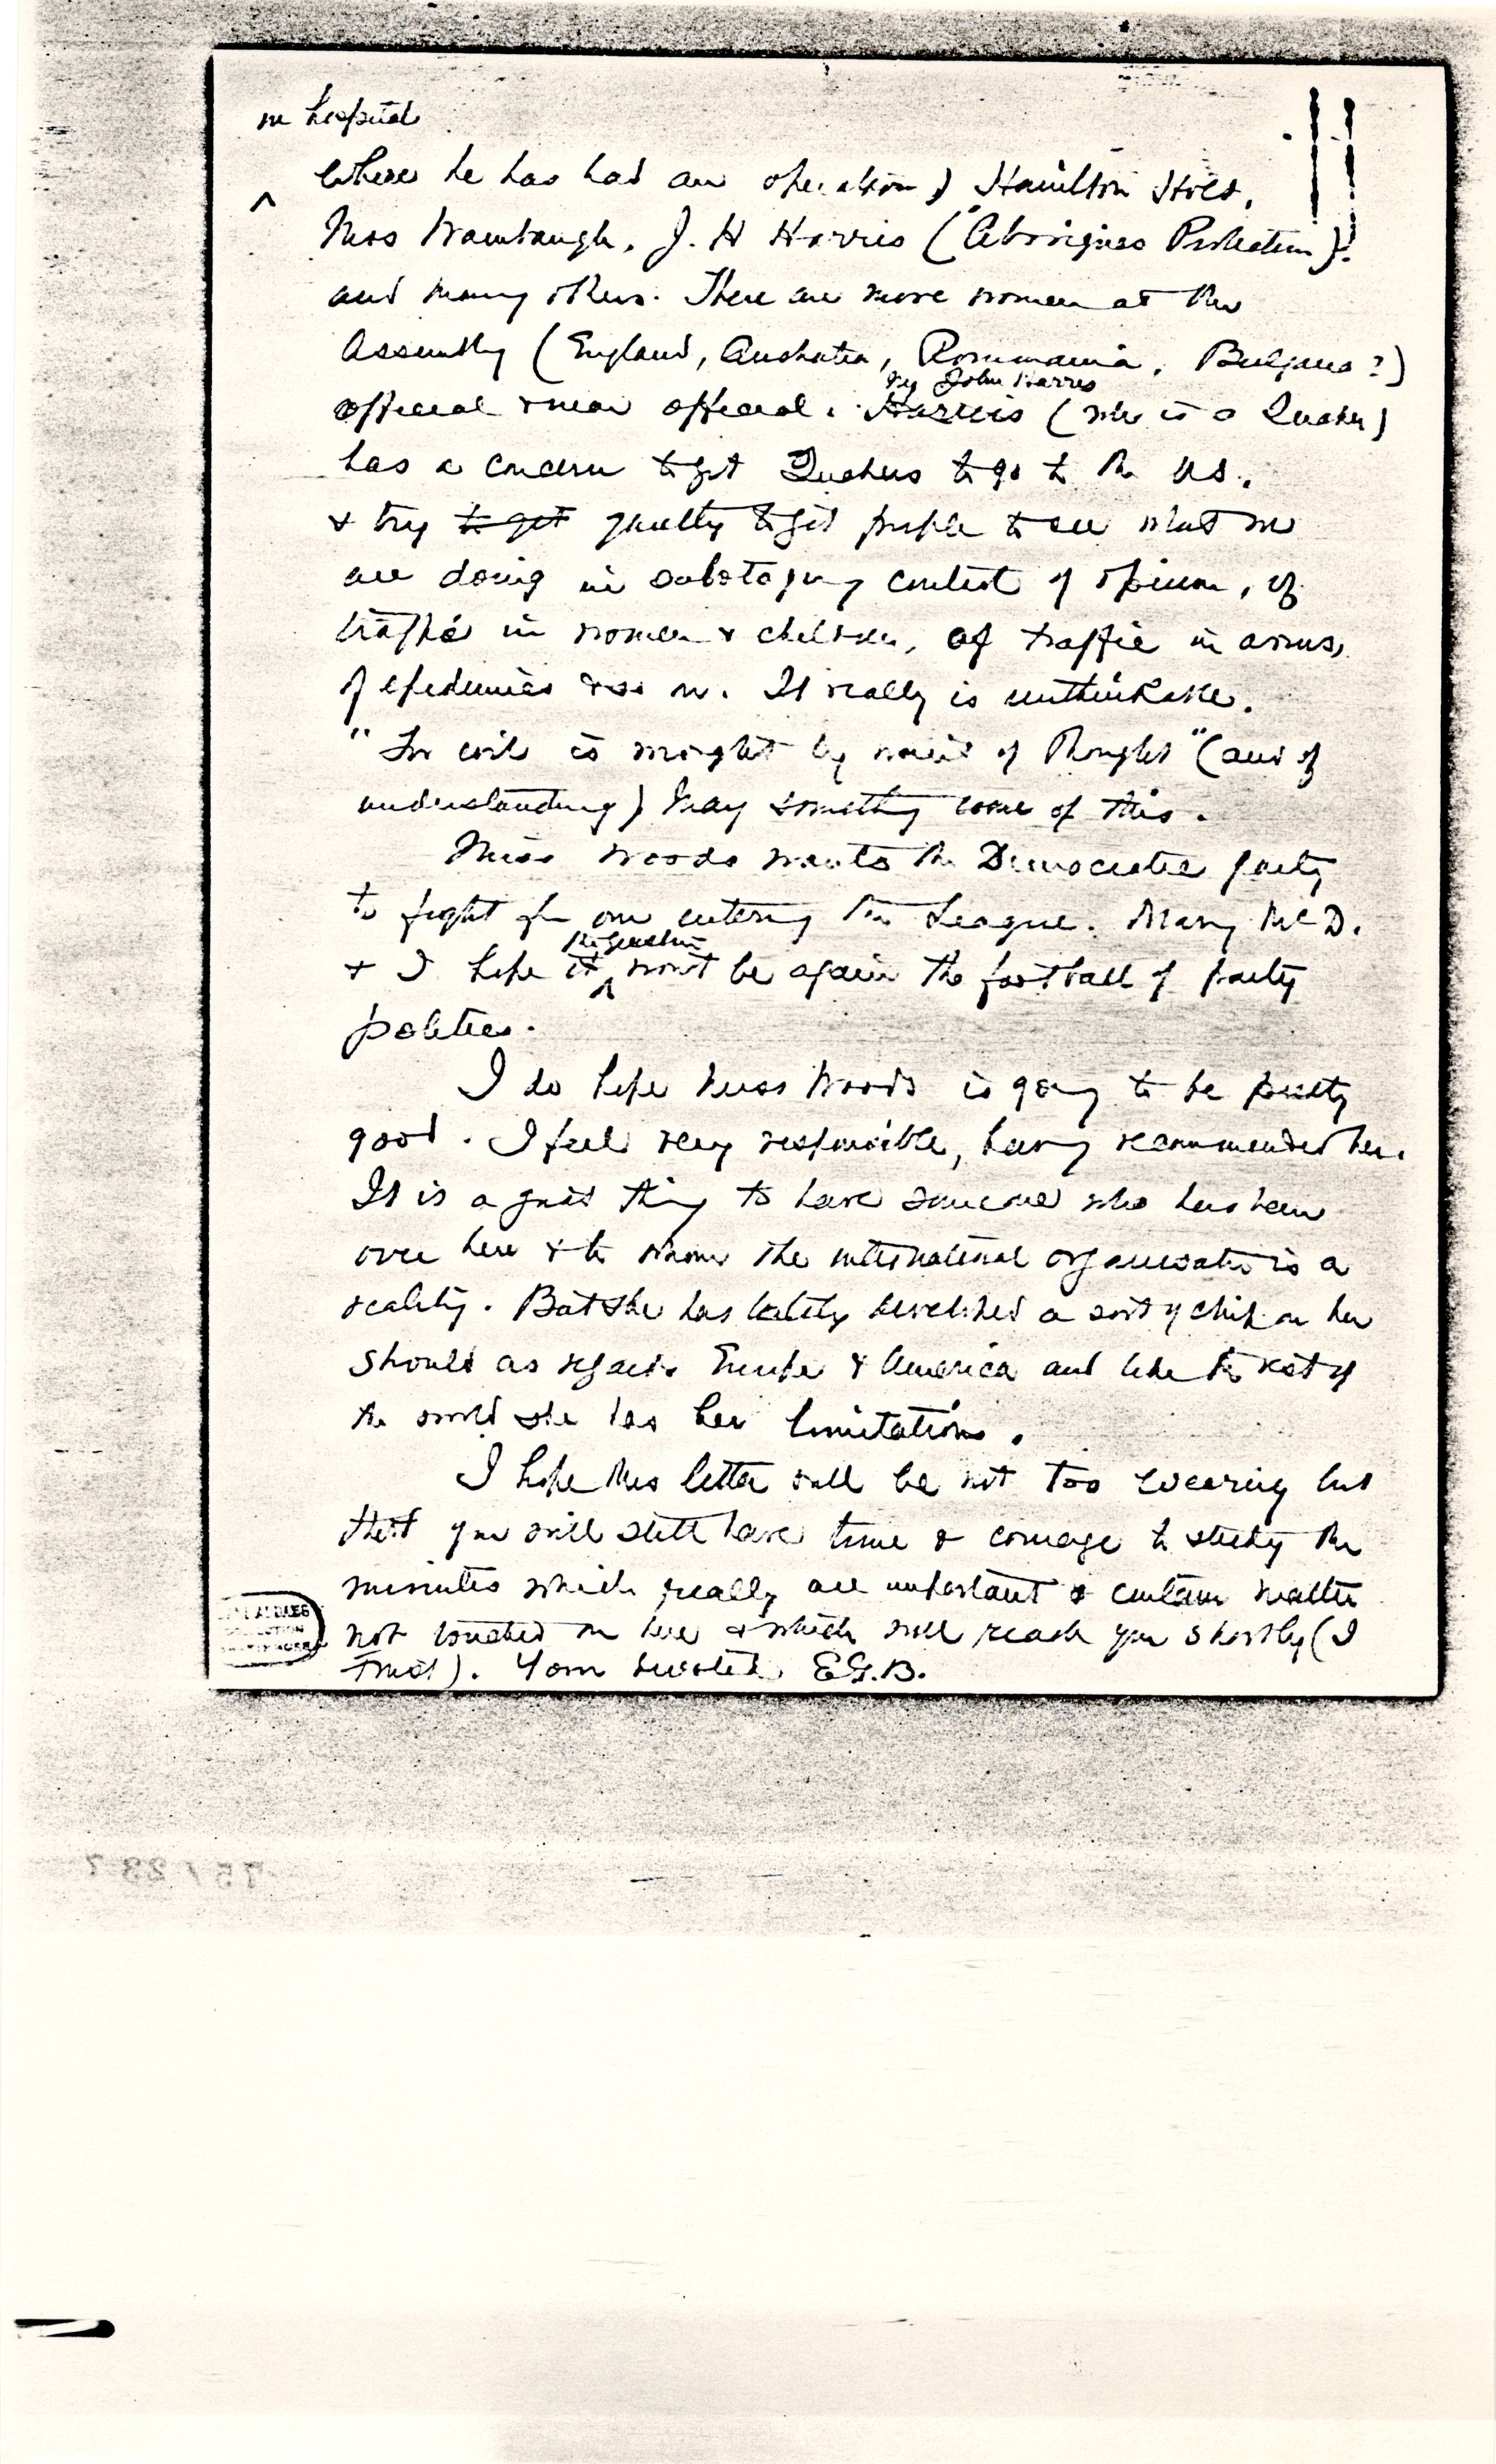 in hospital
where he has had an operation) Hamilton Holt,
Miss Wambaugh, J. H Harris (Aborigines Protection)
and many others. There are more women at the
Assembly (England, Australia, Roumania, Bulgaria?)
official & near official.
by John Harris
Harris (who is a Quaker)
has a concern to get Quakers to go to the US.
& try to get quietly to get people to see what we
are doing in sabotaging control of opium, of
traffic in women & children, of traffic in arms,
of epidemics & so on. It really is unthinkable.
"For evil is wrought by want of Thought" (and of
understanding) May something come of this.
Miss Woods wants the Democratic party
to fight for our entering the League. Mary McD.
& I hope it won't be again the football of party
politics.
I do hope Miss Woods is going to be pretty
good. I feel very responsible, having recommended her.
It is a great thing to have someone who has been
over here & to whom the international organization is a
reality. But she has lately developed a sort of chip on her
should as regards Europe & America and like the rest of
the world she has her limitations.
I hope this letter will be not too wearing but
that you will still have time & courage to study the
minutes which really are important & contain matter
not touched on here & which will reach you shortly (I
trust). Your devoted, E.G.B.